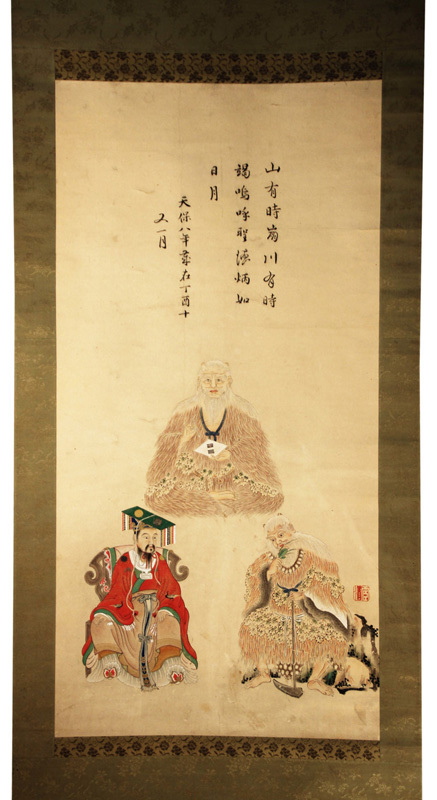 山有時崩川有時
竭嗚呼聖德炳如
日月
天保八年在丁酉十
又一月